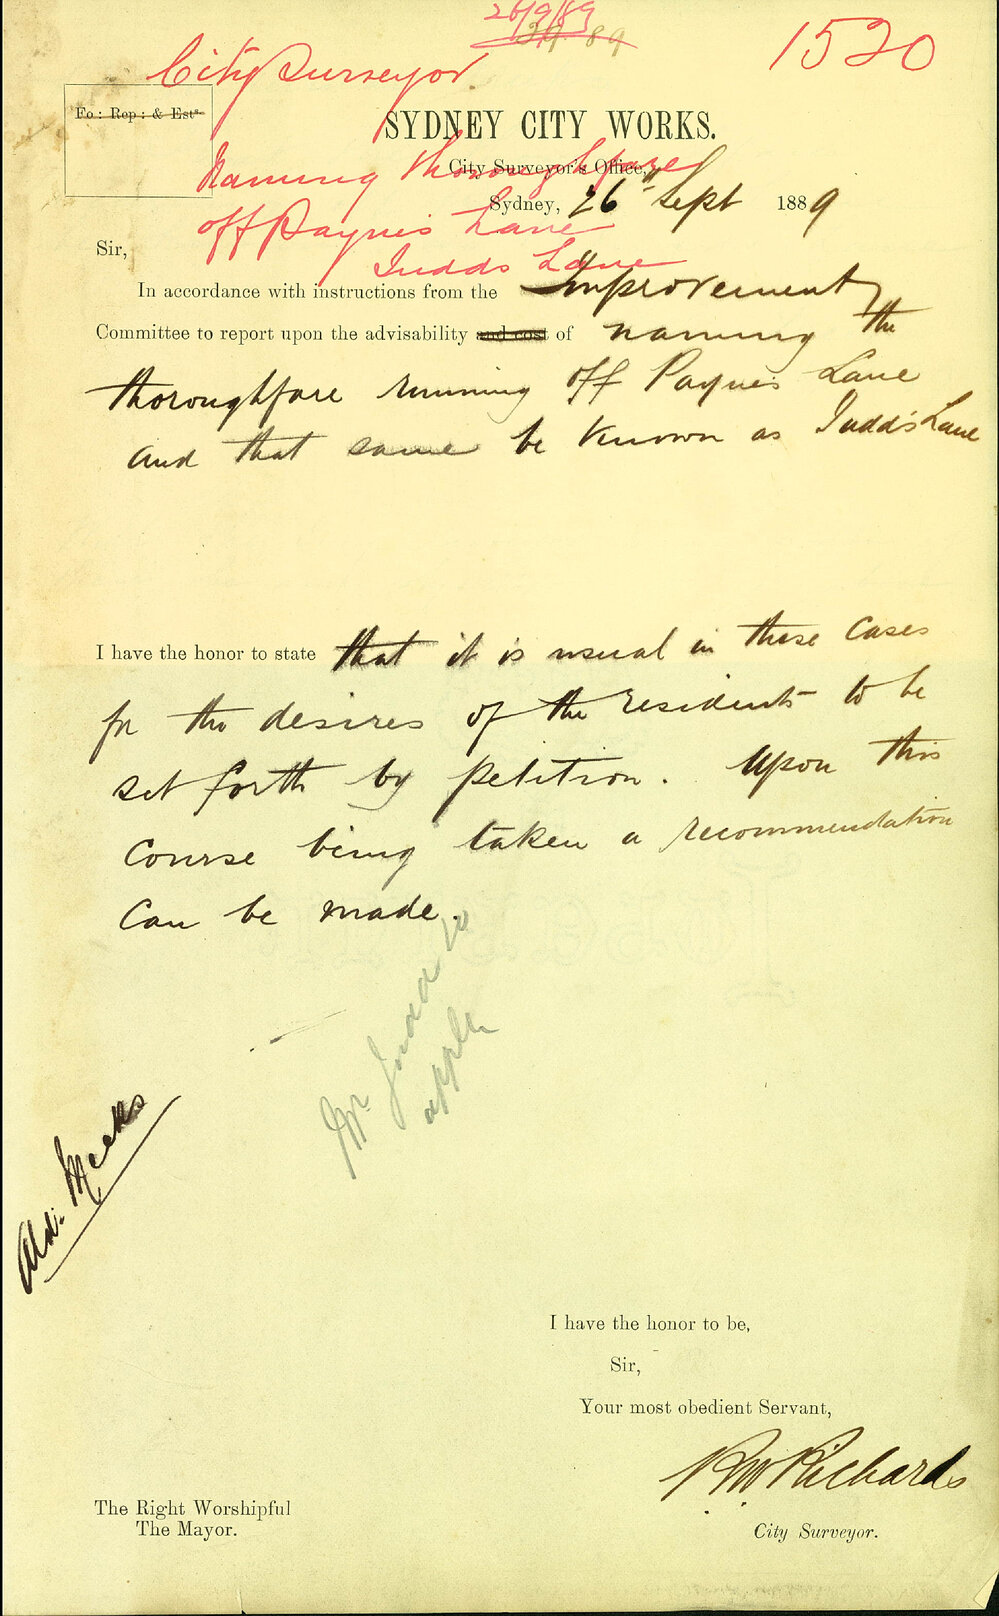 26/9/89
1520
City Surveyor
Fo: Rep: & Ests
SYDNEY CITY WORKS.
Naming thoroughfare
City Surveyor's Office,
Sydney, 26th Sept 1889
off Paynes Lane
Sir,
Judds Lane
In accordance with instructions from the Improvement
Committee to report upon the advisability and cost of naming the
thoroughfare running off Payne's Lane
and that same be known as Judd's Lane
I have the honor to state that it is usual in these cases
for the desires of the residents to be
set forth by petition. Upon this
course being taken a recommendation
can be made.
Mr. Judd to
apply
Ald. Meeks
I have the honor to be,
Sir,
Your most obedient Servant,
RW Richards
The Right Worshipful
The Mayor.
City Surveyor.